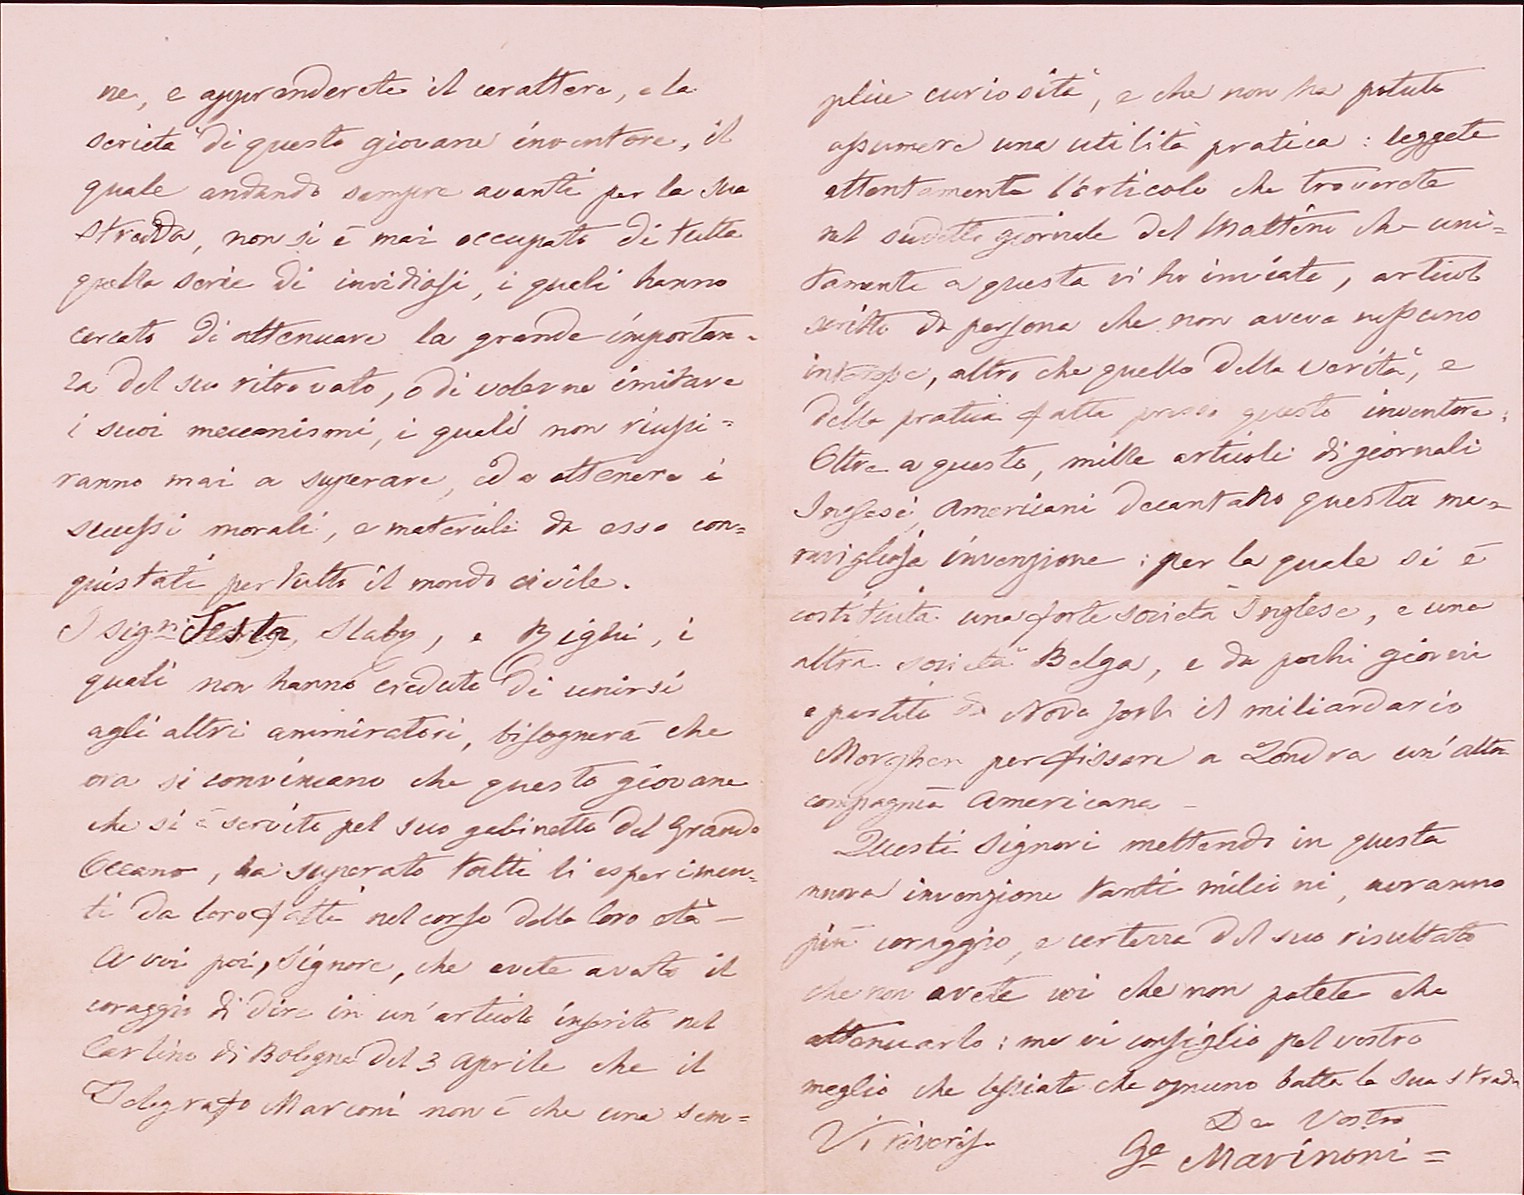 ne, e apprenderete il carattere, e la
serietà di questo giovane inventore, il
quale andando sempre avanti per la sua
stradda, non si è mai occupato di tutta
quella serie di invidiosi, i quali hanno
cercato di attenuare la grande importan-
za del suo ritrovato, o di volerne imitare
i suoi meccanismi, i quali non riussi=
ranno mai a superare, ed a ottenere i
successi morali, e materiali da esso con=
quistati per tutto il mondo civile.
I sig.ri Tesla, Slaby, e Righi, i
quali non hanno creduto di unirsi
agli altri ammiratori, bisognerà che
ora si convincano che questo giovane
che si è servito pel suo gabinetto del Grando
Occano, ha superato tutti li esperimen=
ti da loro fatti nel corso della loro età —
A voi poi, Signore, che avete avuto il
coraggio di dire in un'articolo inserito nel
Carlino di Bologna del 3 Aprile che il
Telegrafo Marconi non è che una sem=
plice curiosità, e che non ha potuto
assumere una utilità pratica: leggete
attentamente l'articolo che troverete
nel sudetto giornale del Mattino che uni=
tamente a questa vi ho inviato, articolo
scritto da persona che non aveva nissuno
interesse, altro che quello della verità, e
della pratica fatta presso questo inventore:
Oltre a questo, mille articoli di giornali
Inglesi, Americani decantano questa me-
ravigliosa invenzione: per la quale si è
costituita una forte società Inglese, e una
altra società Belga, e da pochi giorni
e partito da Nova Jorh il miliardario
Morghen per fissare a Londra un'altra
compagnia Americana —
Questi Signori mettendo in questa
nuova invenzione tanti milioni, avranno
più coraggio, e certezza del suo risultato
che non avete voi che non potete che
attenuarlo: ma vi consiglio pel vostro
meglio che lassiate che ognuno batta la sua strada
Vi riverisco
Dev Vostro
Ge Marinoni =